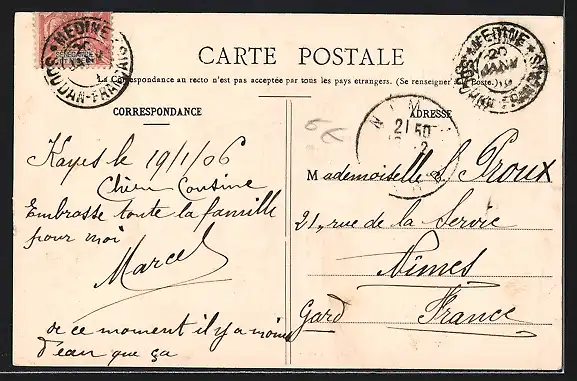 MEDINE
20
JANV
SOUDAN-FRANÇAIS
CARTE POSTALE
MEDINE
20
JANV
SOUDAN-FRANÇAIS
La Correspondance au recto n'est pas acceptée par tous les pays etrangers. (Se renseigner à la Poste.)
CORRESPONDANCE
Kayes le 19/1/06
Chère Cousine
Embrasse toute la famille
pour moi
Marcel
de ce moment il y a moins
d'eau que ça
ADRESSE
NIM
21 50
2
Mademoiselle S. Proux
21, rue de la Servie
Nîmes
Gard France